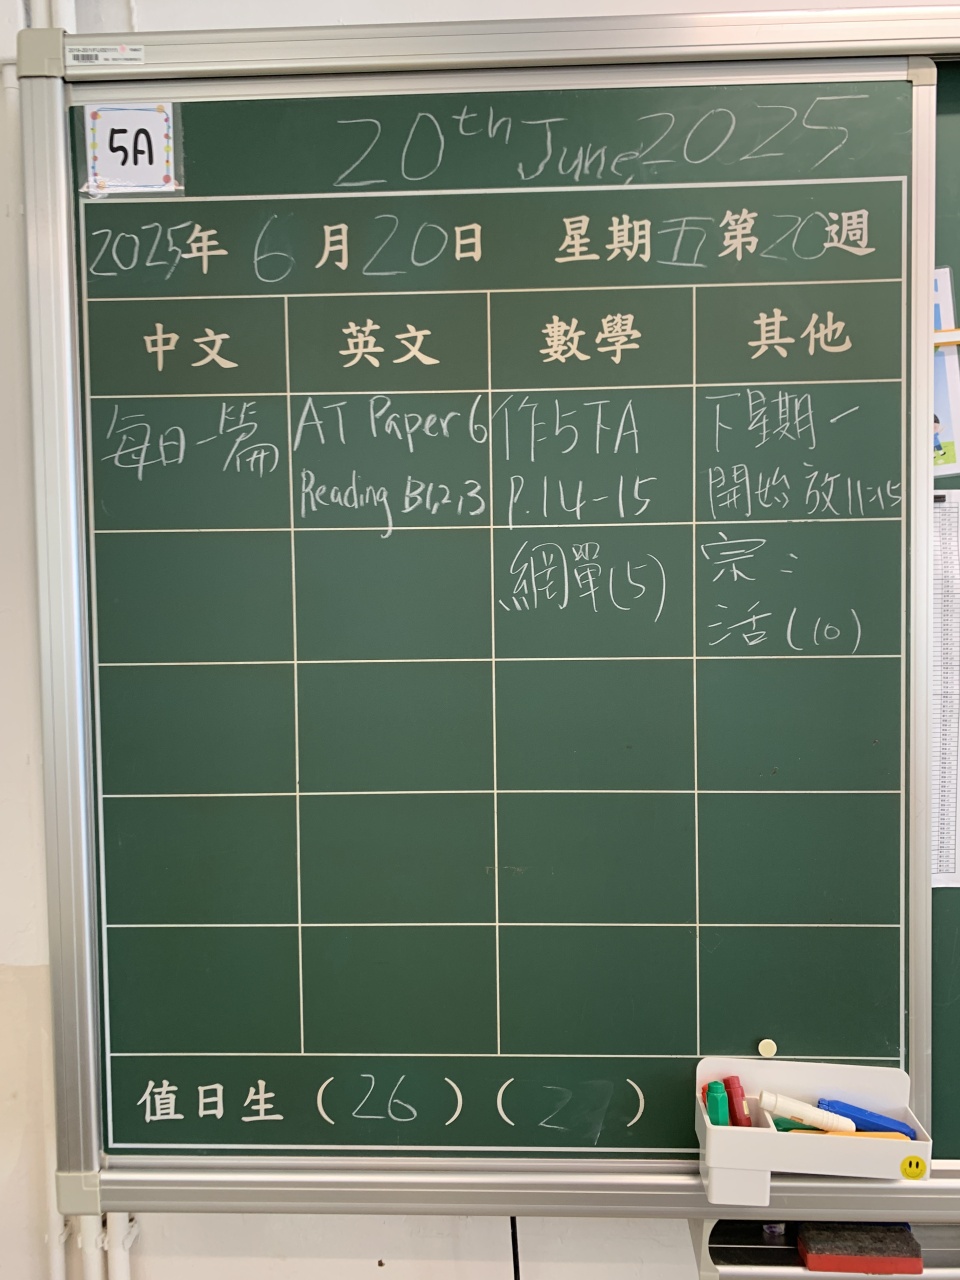 5A
20th June, 2025
2025年 6月20日 星期五第20週
中文 英文 數學 其他
每日一篇
AT Paper 6
Reading B1,2,3
作5下A
P.14-15
網單(5)
下星期一
開始放11:15
宗:
活(10)
值日生(26)(27)